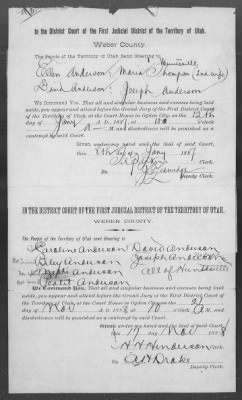 In the District Court of the First Judicial District of the Territory of Utah.
Weber County.
The People of the Territory of Utah Send Greeting to
Huntsville
Ellen Anderson, Maria Thompson (2nd wife)
David Anderson, Joseph Anderson
We Command You, That all and singular business and excuses being laid
aside, you appear and attend before the Grand Jury of the First District Court of
the Territory of Utah, at the Court House in Ogden City, on the 12th
day of Jany A. D. 188 at 10 o'clock
a M., and disobedience will be punished as a
contempt by said Court.
Given under my hand the seal of said Court,
this 8th day of Jany 188
Clerk.
By
Deputy Clerk.
IN THE DISTRICT COURT OF THE FIRST JUDICIAL DISTRICT OF THE TERRITORY OF UTAH,
WEBER COUNTY.
The People of the Territory of Utah send Greeting to
Caroline Anderson David Anderson
Anderson Joseph Anderson
Anderson All of Huntsville
Anderson
We Command You, That all and singular business and excuses being laid
aside, you appear and attend before the Grand Jury of the First District Court of
the Territory of Utah, at the Court House in Ogden City, on the 21
day of Nov A. D. 188 at 10 o'clock a M., and
disobedience will be punished as a contempt by said Court.
Witness under my hand and the seal of said Court,
this 19 day of Nov 188
H H Henderson Clerk.
By A H Drake
Deputy Clerk.